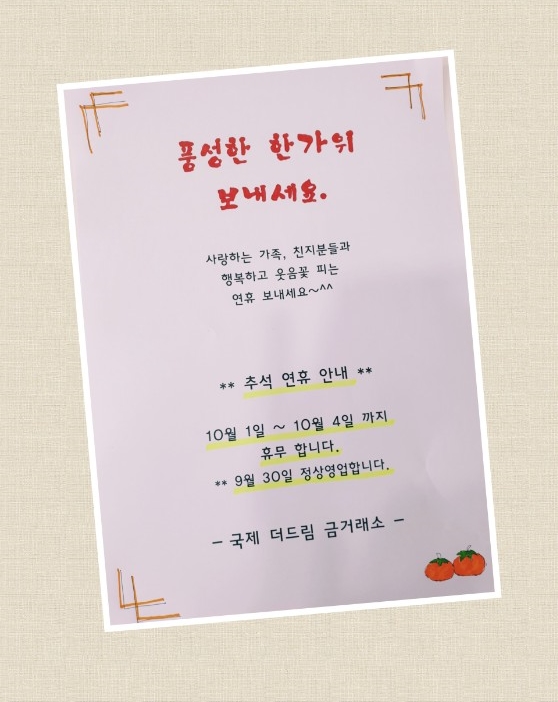 풍성한 한가위
보내세요.
사랑하는 가족, 친지분들과
행복하고 웃음꽃 피는
연휴 보내세요~^^
** 추석 연휴 안내 **
10월 1일 ~ 10월 4일 까지
휴무 합니다.
** 9월 30일 정상영업합니다.
- 국제 더드림 금거래소 -